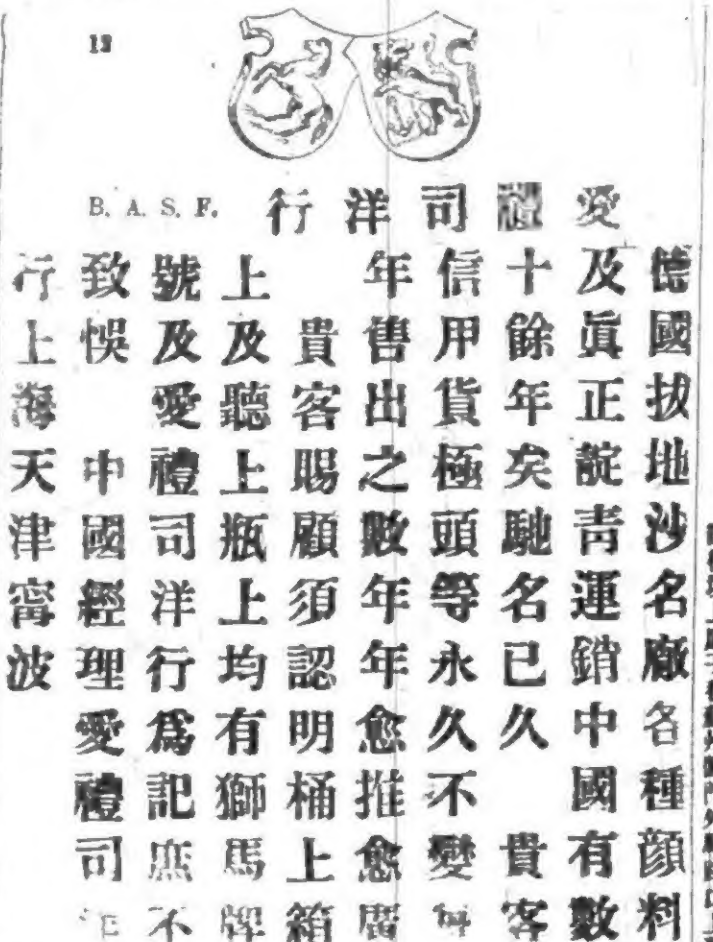 12
愛禮司洋行
B. A. S. F.
德國拔地沙名廠各種顔料
及眞正靛青運銷中國有數
十餘年矣馳名已久 貴客
信甲貨極頭等永久不變每
年售出之數年年愈推愈廣
貴客賜顧須認明桶上箱
上及聽上瓶上均有獅馬牌
號及愛禮司洋行爲記庶不
致悞 中國經理愛禮司洋
行上海天津甯波